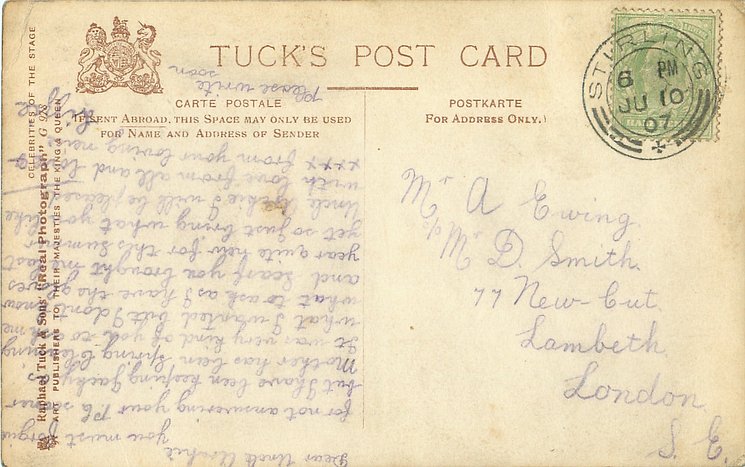 TUCK'S POST CARD
CARTE POSTALE
(IF SENT ABROAD, THIS SPACE MAY ONLY BE USED
FOR NAME AND ADDRESS OF SENDER
POSTKARTE
FOR ADDRESS ONLY.)
STIRLING
6 PM
JU 10
07
Mr A Ewing
c/o Mr D. Smith
77 New-Cut
Lambeth
London
S. E.
Dear Uncle Archie
you must forgive
for not answering your P.C. sooner
but I have been keeping Jacky
Mother has been spring cleaning
It was very kind of you to ask me
what I wanted but I dont know
what to ask as I have the gloves
and scarf you brought me last
year quite new for this summer
yet so just bring what you like
Uncle Archie I will be pleased
with love from all and to
xxx from your loving
Please write
soon
CELEBRITIES OF THE STAGE
Raphael Tuck & Sons' "Real Photograph" G
ART PUBLISHERS TO THEIR MAJESTIES THE KING & QUEEN